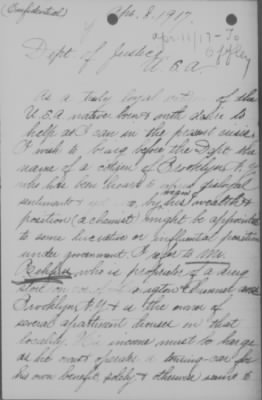 (Confidential)
Apr. 8. 1917.
Apr 11/17 - To
Offley
Dept. of Justice,
U. S. A.
As a truly loyal citizen of the
U.S.A. native born & with desire to
help as I can in the present crisis
I wish to bring before the Dept. the
name of a citizen of Brooklyn N.Y.
who has been heard to
sentiments & by his wealth &
position (a chemist) might be appointed
to some lucrative or influential position
under government. I refer to Mr.
who is proprietor of a drug
store on cor of and
Brooklyn, N.Y. & is the owner of
several apartment houses in that
locality. His income must be large
as he owns & operates a touring-car for
his own benefit, solely, & otherwise seems to